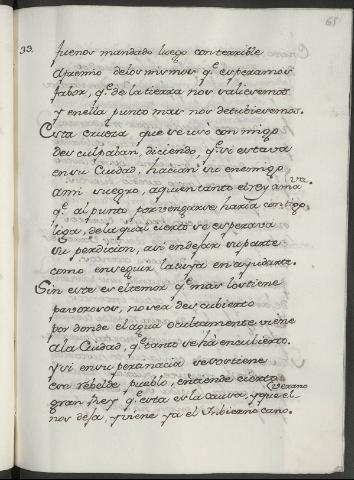 65
33. fuenos mandado luego con terrible
apremio de los mismos q.e esperamos
fabor, q.e de la tierra nos valiesemos
y en ella punto mas nos detubiesemos.
Esta crueza, que se usó con migo
desculpaban, diciendo q.e si estava
en su Ciudad, hacian su enemigo
ami suegro, aquien tanto el rey ama
va.
q.e al punto por vengarse haria contigo,
liga, de la qual cierto se esperava
su perdicion, asi en dejar su parte
como en seguir la tuya en ayudarte.
Sin este es el temor q.e mas los tiene
pavorosos, no sea descubierto
por donde el agua ocultamente viéne
a la Ciudad, q.e tanto se há encubierto.
y si en su pertinacia se sostiene
ese rebelde pueblo, entiende cierto
gran Rey q.e esta es la causa, y que el
verano
nos deja, y viene ya el Inbierno cano.